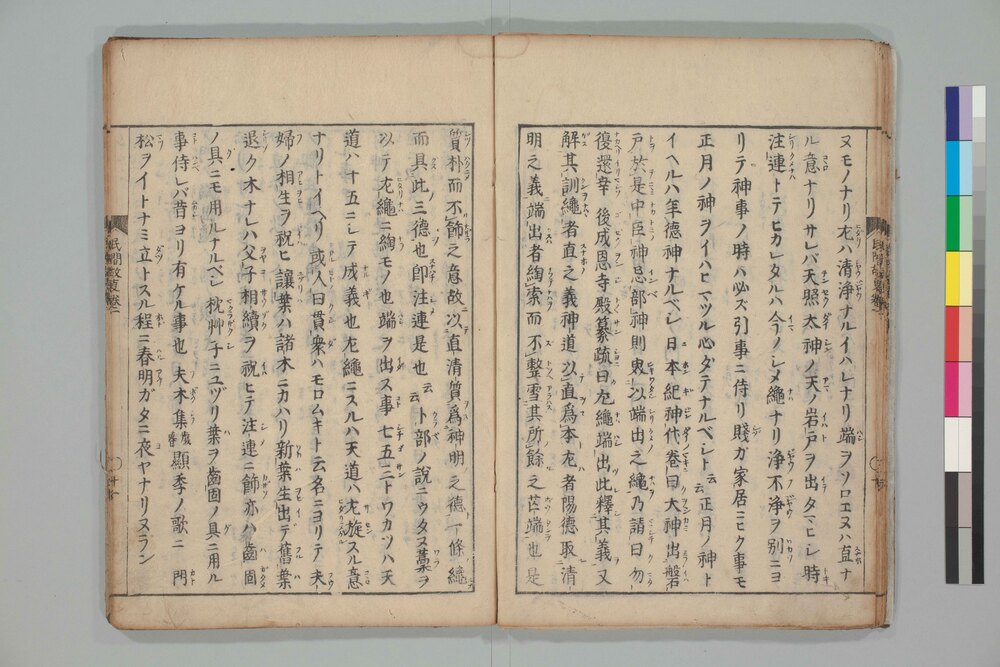 ヌモノナリ左ハ清浄ナルイハレナリ端ヲソロエヌハ直ナ
ル意ナリサレバ天照太神ノ天ノ岩戸ヲ出タマヒシ時
注連トテヒカレタルハ今ノシメ繩ナリ浄不浄ヲ別ニヨ
リテ神事ノ時ハ必ズ引事ニ侍リ賤ガ家居ニヒク事モ
正月ノ神ヲイハヒマツル心ダテナルベシト云云正月ノ神ト
イヘルハ年德神ナルベシ日本紀神代卷曰大神出磐
戸於是中臣神忌部神則界以端出之繩乃請曰勿
復還幸 後成恩寺殿纂疏曰左繩端出此釋其義又
解其訓繩者直之義神道以直爲本左者陽德取清
明之義端出者綯索而不整雪其所餘之芒端也是
質朴而不飾之意故以直清質爲神明之德一條繩
而具此三德也即注連是也云云卜部ノ說ニウタヌ藁ヲ
以テ左繩ニ綯モノ也端ヲ出ス事七五三トワカツハ天
道ハ十五ニシテ成義也左繩ニスルハ天道ハ左旋スル意
ナリトイヘリ或人曰貫衆ハモロムキト云名ニヨリテ夫
婦ノ相生ヲ祝ヒ讓葉ハ諸木ニカハリ新葉生出テ舊葉
退ク木ナレハ父子相續ヲ祝ヒテ注連ニ飾亦ハ齒固
ノ具ニモ用ルナルベシ枕艸子ニユヅリ葉ヲ齒固ノ具ニ用ル
事侍レバ昔ヨリ有ケル事也夫木集歳暮顯季ノ歌ニ 門
松ヲイトナミ立トスル程ニ春明ガタニ夜ヤナリヌラン
民間故叓卷二